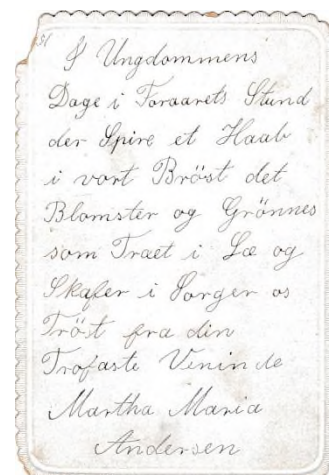 I Ungdommens
Dage i Foraarets Stund
der Spire et Haab
i vort Bröst det
Blomster og Grönnes
som Traet i Læ og
Skafer i Sorger os
Tröst fra din
Trofaste Veninde
Martha Maria
Andersen